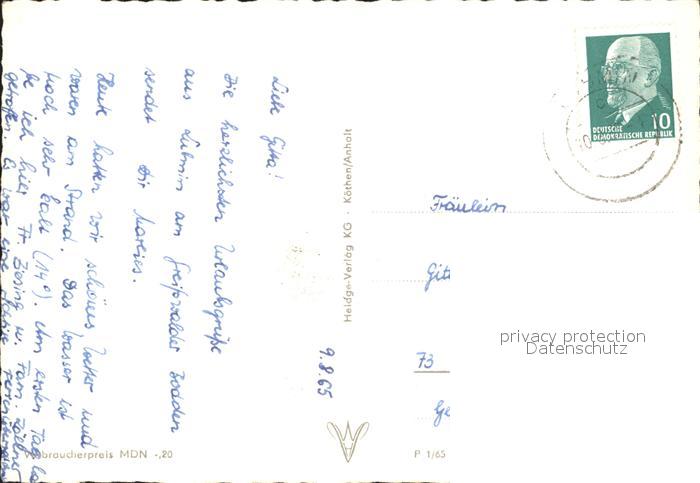 Liebe Gitta!
Die herzlichsten Urlaubsgrüße
aus Lubmin am Greifswalder Bodden
sendet Dir Marlies.
Heute hatten wir schönes Wetter und
waren am Strand. Das Wasser ist
noch sehr kalt (14°). Am ersten Tag ha
be ich hier Fr. Ziesing u. Fam. Zöllner
getroffen. Es war eine
9.8.65
Verbraucherpreis MDN -,20
Heldge-Verlag KG · Köthen/Anhalt
P 1/65
DEUTSCHE
DEMOKRATISCHE REPUBLIK
10
Fräulein
Gitt
73
Ge
privacy protection
Datenschutz